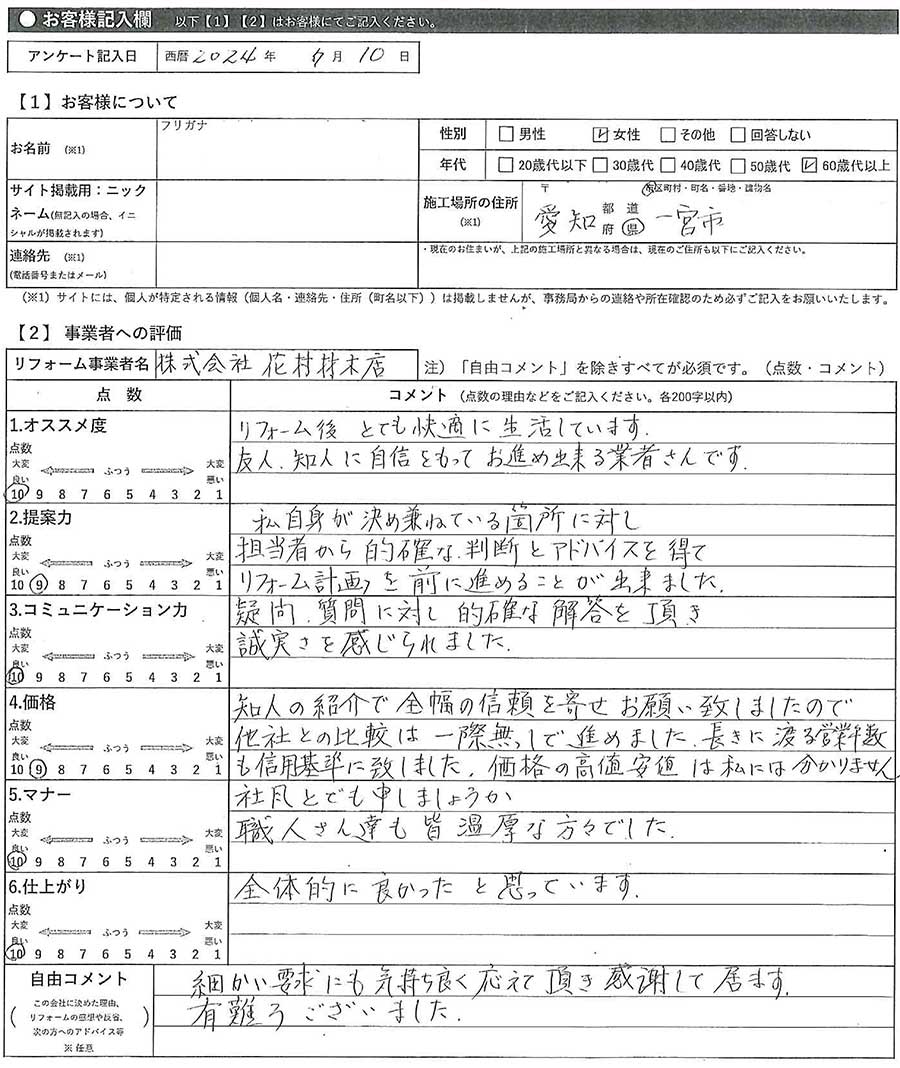 ● お客様記入欄 以下【1】【2】はお客様にてご記入ください。
アンケート記入日 西暦 2024 年 月 10 日
【1】お客様について
お名前 (※1) フリガナ
性別 □男性 ☑女性 □その他 □回答しない
年代 □20歳代以下 □30歳代 □40歳代 □50歳代 ☑60歳代以上
サイト掲載用：ニック
ネーム(無記入の場合、イニ
シャルが掲載されます)
施工場所の住所
(※1)
〒 市区町村・町名・番地・建物名
愛知 都 道 府 県 一宮市
連絡先 (※1)
(電話番号またはメール)
・現在のお住まいが、上記の施工場所と異なる場合は、現在のご住所も以下にご記入ください。
(※1) サイトには、個人が特定される情報（個人名・連絡先・住所（町名以下））は掲載しませんが、事務局からの連絡や所在確認のため必ずご記入をお願いいたします。
【2】事業者への評価
リフォーム事業者名 株式会社 花村材木店
注）「自由コメント」を除きすべてが必須です。（点数・コメント）
点 数 コメント（点数の理由などをご記入ください。各200字以内）
1.オススメ度
点数
大変良い ふつう 大変悪い
10 9 8 7 6 5 4 3 2 1
リフォーム後 とても快適に生活しています.
友人、知人に自信をもってお進め出来る業者さんです.
2.提案力
点数
大変良い ふつう 大変悪い
10 9 8 7 6 5 4 3 2 1
私自身が決め兼ねている箇所に対し
担当者から的確な.判断とアドバイスを得て
リフォーム計画を前に進めることが出来ました.
3.コミュニケーション力
点数
大変良い ふつう 大変悪い
10 9 8 7 6 5 4 3 2 1
疑問.質問に対し的確な解答を頂き
誠実さを感じられました.
4.価格
点数
大変良い ふつう 大変悪い
10 9 8 7 6 5 4 3 2 1
知人の紹介で全幅の信頼を寄せお願い致しましたので
他社との比較は一際無しで進めました.長きに渡る営業年数
も信用基準に致しました.価格の高値安値は私には分かりません.
5.マナー
点数
大変良い ふつう 大変悪い
10 9 8 7 6 5 4 3 2 1
社風とでも申しましょうか
職人さん達も皆温厚な方々でした.
6.仕上がり
点数
大変良い ふつう 大変悪い
10 9 8 7 6 5 4 3 2 1
全体的に良かったと思っています.
自由コメント
(この会社に決めた理由、
リフォームの感想や反省、
次の方へのアドバイス等)
※ 任意
細かい要求にも気持ち良く応えて頂き感謝して居ます.
有難うございました.